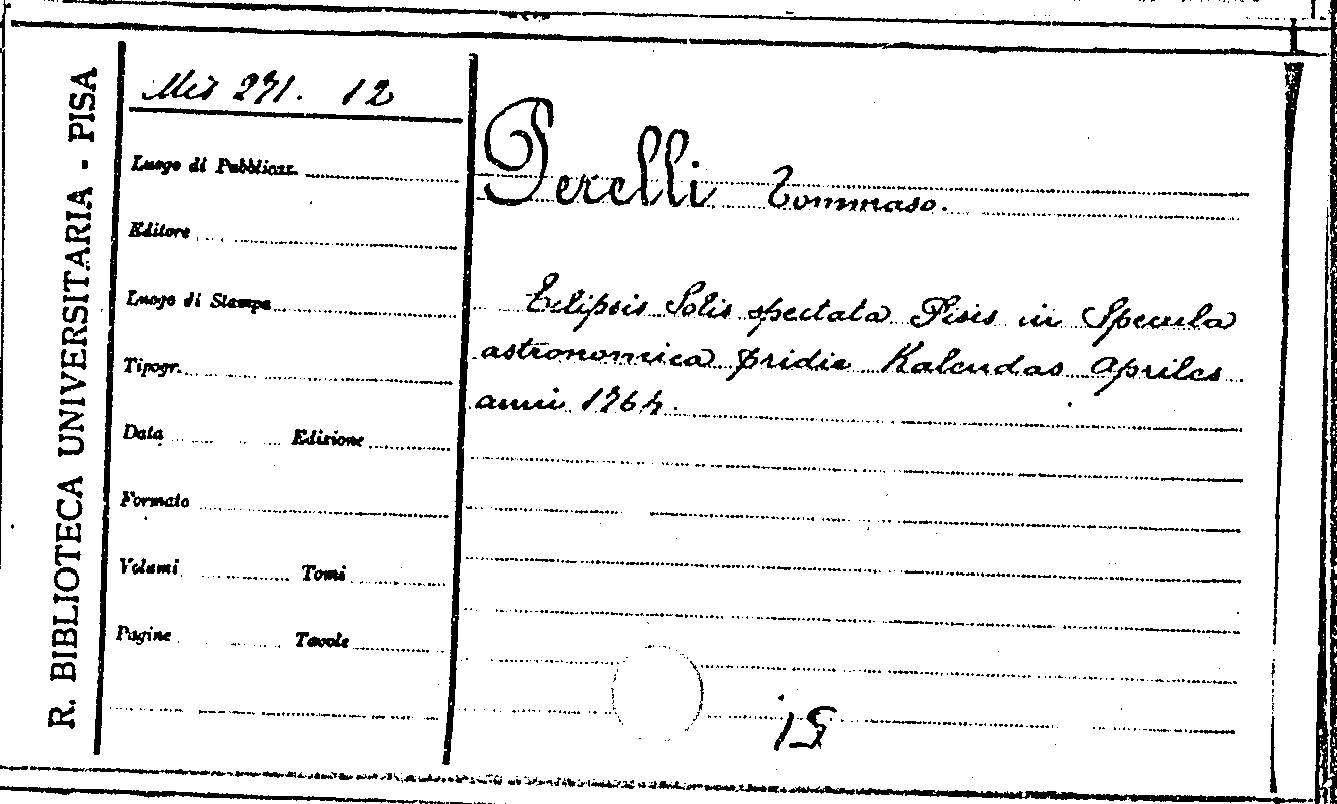 R. BIBLIOTECA UNIVERSITARIA - PISA
Mis 271. 12
Luogo di Pubblicaz.
Editore
Luogo di Stampa
Tipogr.
Data Edizione
Formato
Volumi Tomi
Pagine Tavole
Perelli Tommaso.
Eclipsis Solis spectata Pisis in Specula
astronomica pridie Kalendas Apriles
anni 1764.